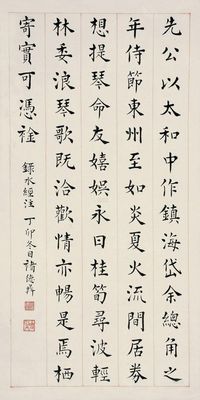 先公以太和中作鎮海岱余總角之
年侍節東州至如炎夏火流間居劵
想提琴命友嬉娱永日桂筍尋波輕
林委浪琴歌既洽歡情亦暢是焉栖
寄實可憑衿
錄水經注 丁卯冬日褚德彝